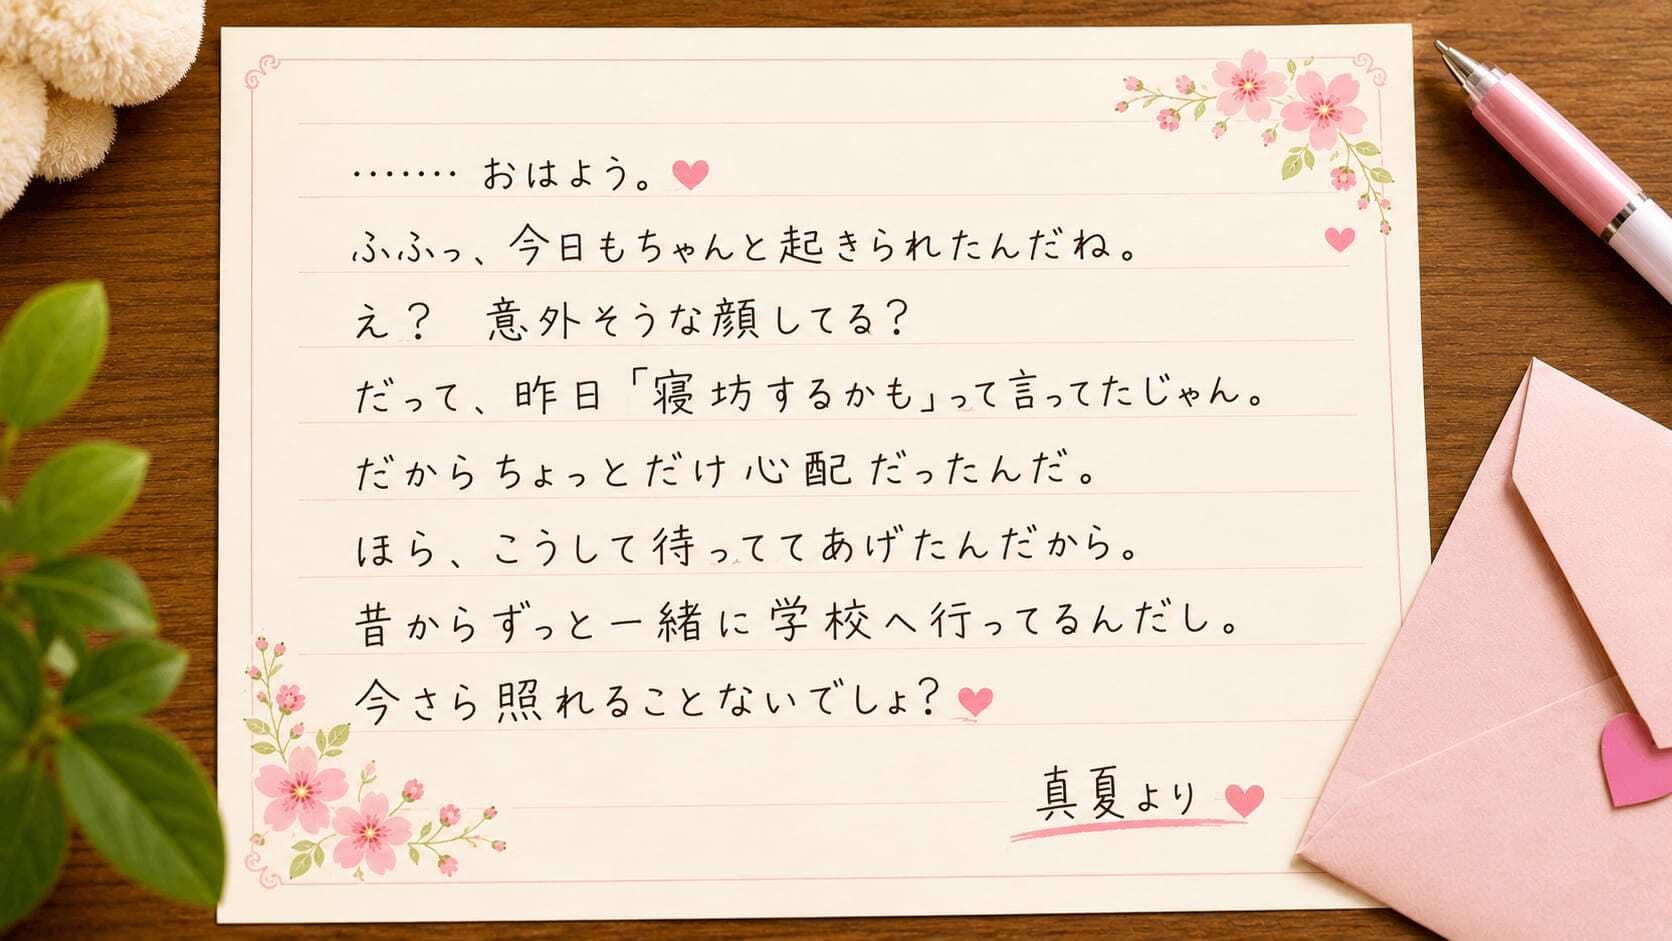 ……. おはよう。
ふふっ、今日もちゃんと起きられたんだね。
え？　意外そうな顔してる？
だって、昨日「寝坊するかも」って言ってたじゃん。
だからちょっとだけ心配だったんだ。
ほら、こうして待っててあげたんだから。
昔からずっと一緒に学校へ行ってるんだし。
今さら照れることないでしょ？
真夏より